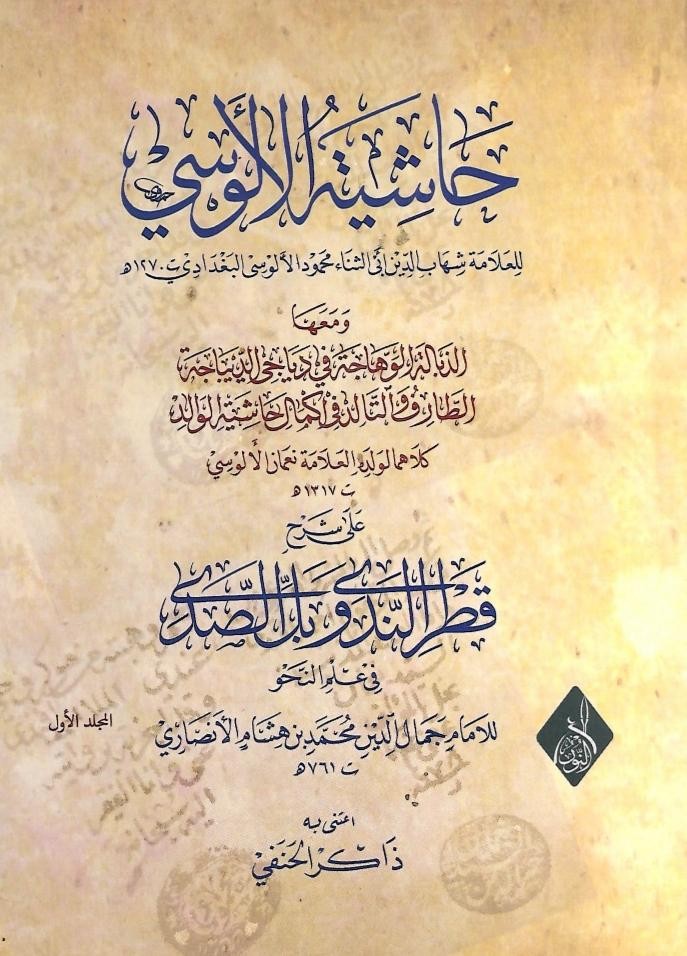 حاشية الألوسي
للعلامة شهاب الدين أبي الثناء محمود الألوسي البغدادي ت ١٢٧٠ هـ
ومعها
الذبالة الوهاجة في دياجي الديباجة
الطارف والتالد في إكمال حاشية الوالد
كلاهما لولده العلامة نعمان الألوسي
ت ١٣١٧ هـ
على شرح
قطر الندى وبل الصدى
في علم النحو
للإمام جمال الدين محمد بن هشام الأنصاري
ت ٧٦١ هـ
المجلد الأول
النور
اعتنى به
ذاكر الحنفي